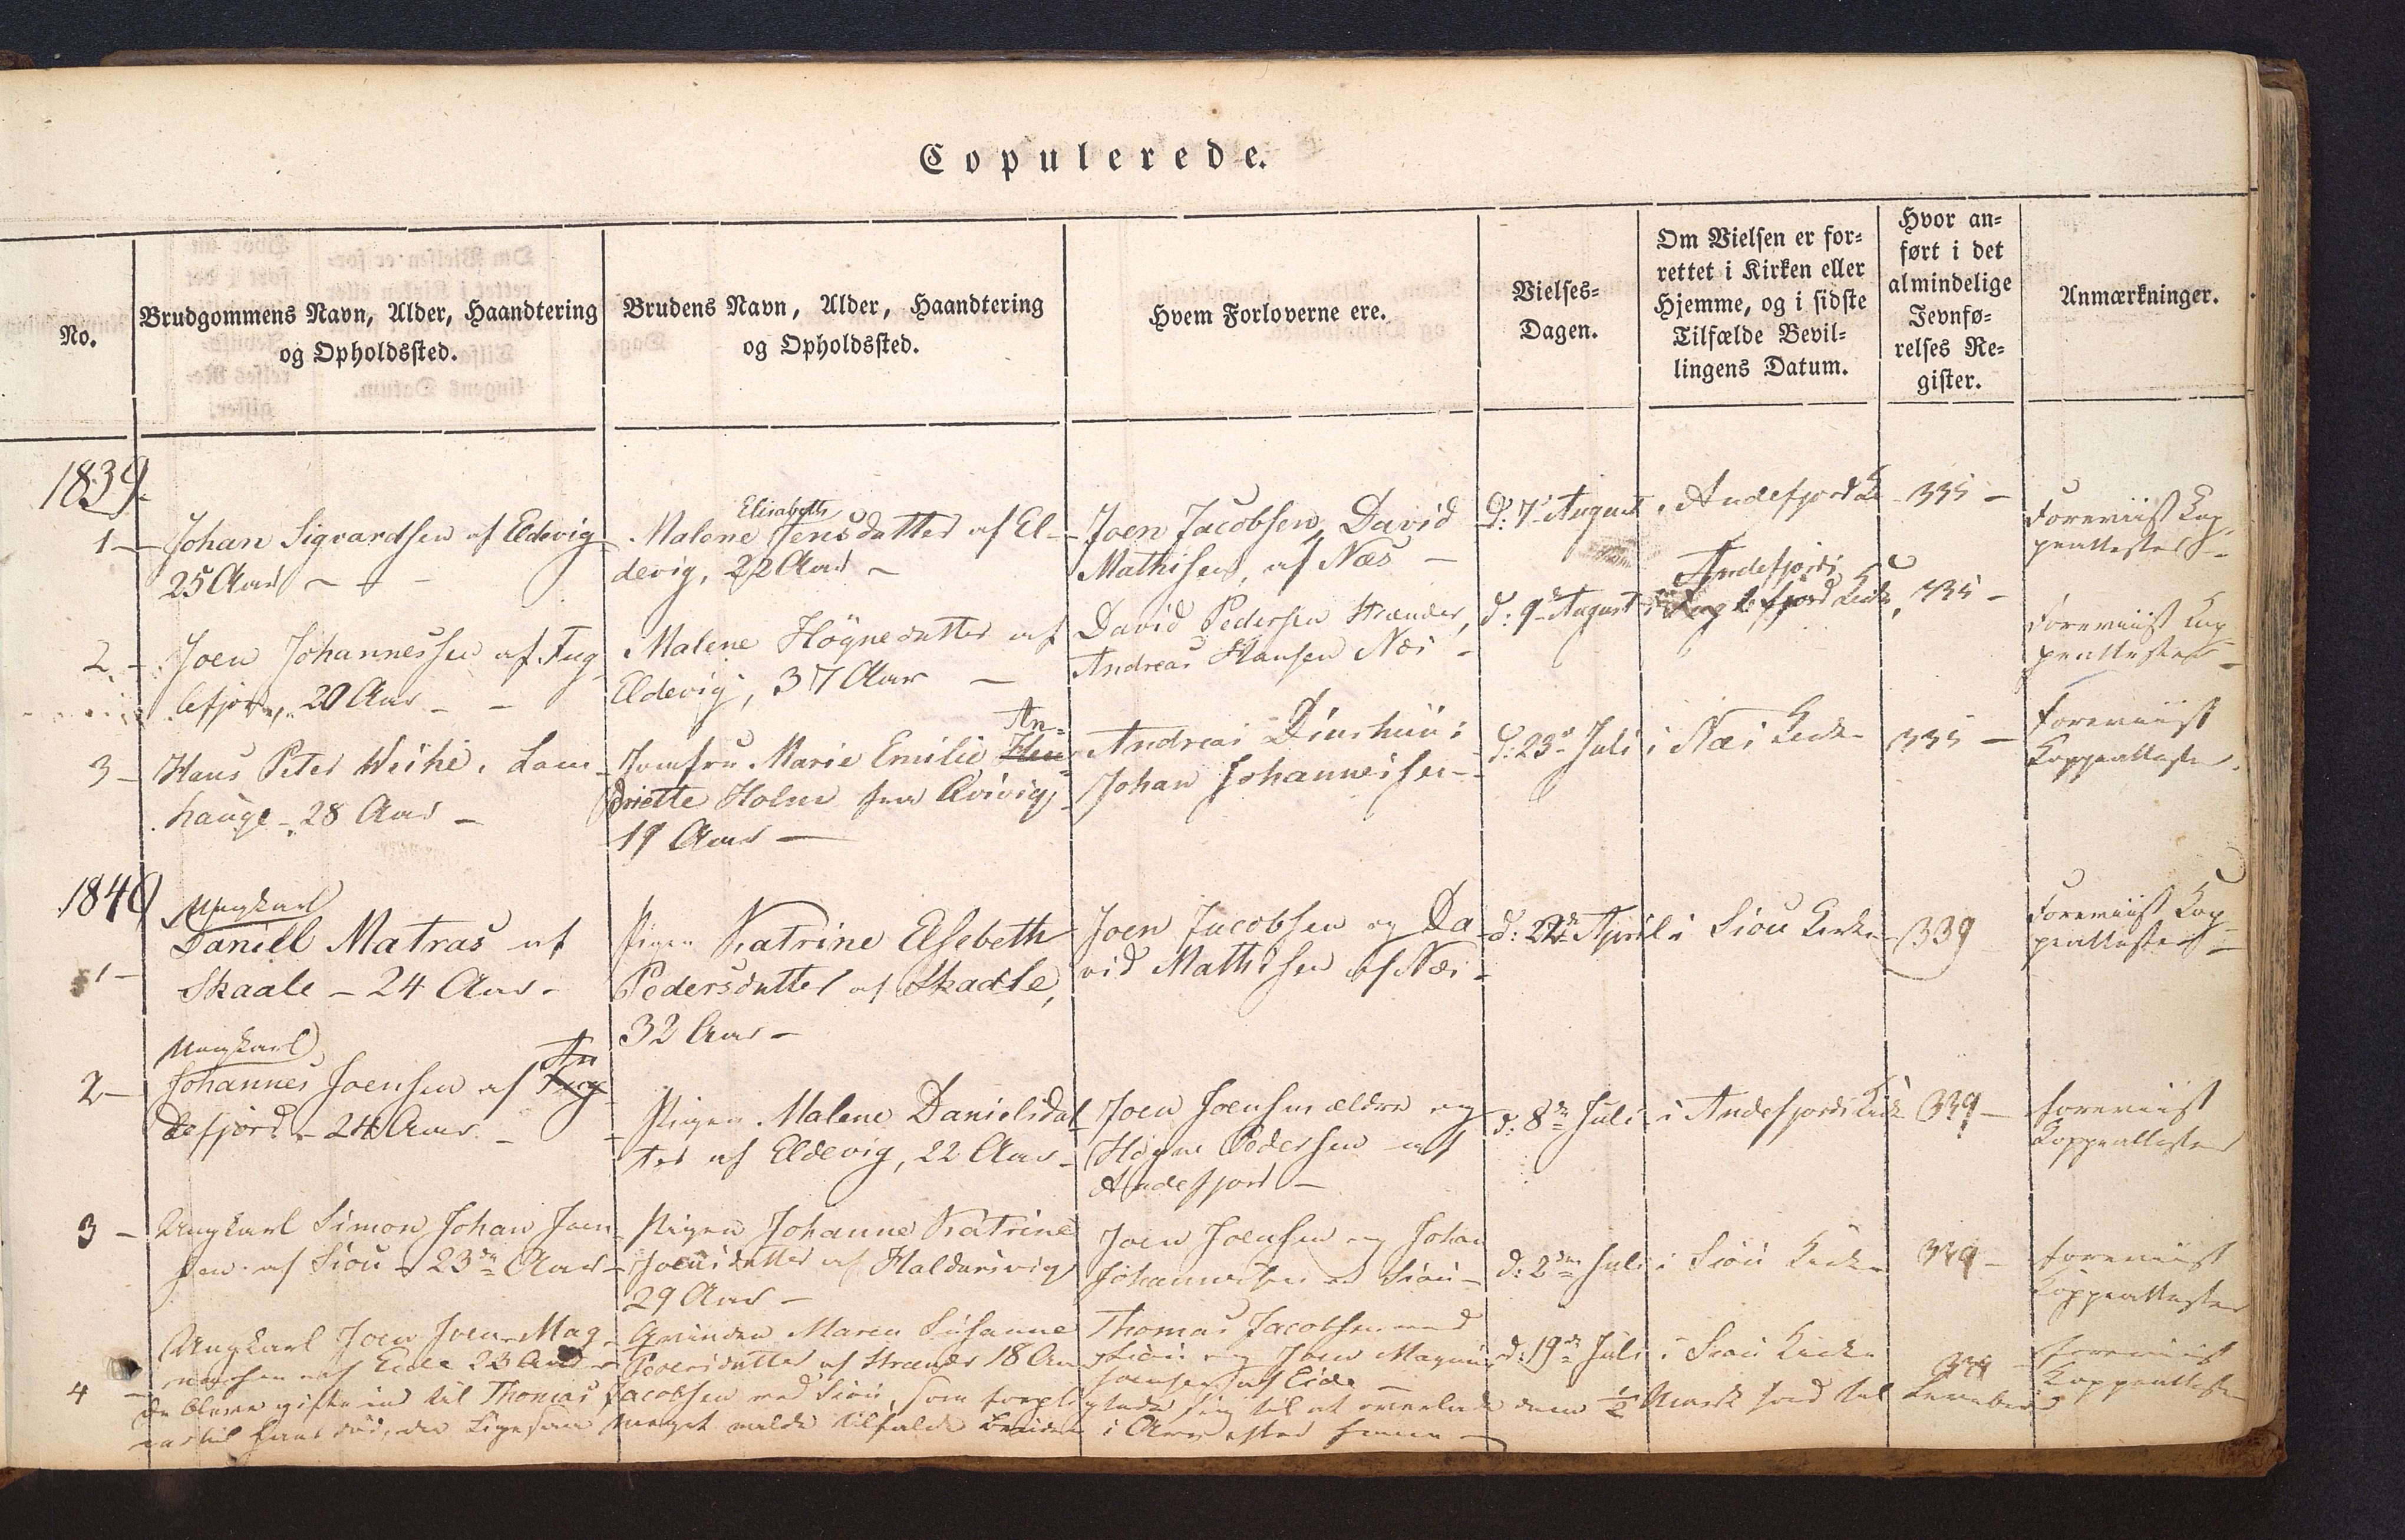 Copulerede.
No.
Brudgommens Navn, Alder, Haandtering
og Opholdssted.
Brudens Navn, Alder, Haandtering
og Opholdssted.
Hvem Forloverne ere.
Vielses-
Dagen.
Om Vielsen er for-
rettet i Kirken eller
Hjemme, og i sidste
Tilfælde Bevil-
lingens Datum.
Hvor an-
ført i det
almindelige
Jevnfø-
relses Re-
gister.
Anmærkninger.
1839.
1 — Johan Sigvardsen af Eldevig
25 Aar —
Elisabeth
Malene Jensdatter af El-
devig, 22 Aar —
Joen Jacobsen, David
Mathisen, af Næs —
d: 7de August
i Andefjord K
335 —
Foreviist Kop-
peattester —
2 — Joen Johannessen af Fug-
lefjord, 20 Aar —
Malene Högnedatter af
Eldevig, 37 Aar —
David Pedersen Strænder,
Andreas Hansen Næs —
d: 9de August
Andefjords
i Fuglefjord Kirke
335 —
Foreviist Kop-
peattester —
3 — Hans Peter Weihe, Lam-
hauge — 28 Aar —
An-
Jomfru Marie Emilie Hen-
driette Holm fra Qvivig,
19 Aar —
Andreas
Johan Johannessen —
d: 23de Juli
i Næs Kirke
335 —
Foreviist
Koppeattester.
1840
Ungkarl
1 — Daniel Matras af
Skaale — 24 Aar —
Pigen Katrine Elsebeth
Pedersdatter af Skaale,
32 Aar —
Joen Jacobsen og Da-
vid Mathisen af Næs —
d: 22de April
i Siou Kirke
339
Foreviist Kop-
peattester —
Ungkarl
An
2 — Johannes Joensen af Fug
defjord — 24 Aar —
Pigen Malene Danielsdat-
ter af Eldevig, 22 Aar —
Joen Joensen ældre og
Högne Pedersen af
Andefjord —
d: 8de Juli
i Andefjords Kirke
339 —
Foreviist
Koppeattester
3 — Ungkarl Simon Johan Joen-
sen af Siou — 23de Aar —
Pigen Johanne Katrine
Joensdatter af Haldersvig
29 Aar —
Joen Joensen og Johan
Johannesen af Siou —
d: 2den Juli
i Siou Kirke
339 —
Foreviist
Koppeattester
4 — Ungkarl Joen Joen Mag-
nussen af Eide 23 Aar —
Qvinden Maren Susanne
Poulsdatter af Strænder 18 Aar
Thomas Jacobsen ved
Siou og Joen Magnus
Joensen af Eide —
d: 19de Juli
i Siou Kirke
339
Foreviist
Koppeattester
De bleve gifte ind til Thomas Jacobsen ved Siou, som forpligtede sig til at overlade dem ½ Mark Jord til
hans død, der ligesaa meget tilfalde Bruden i Arv efter